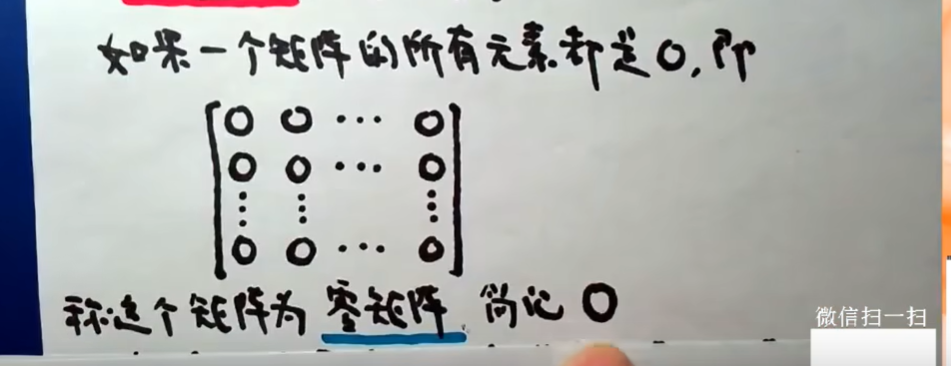 如果一个矩阵的所有元素都是0,即
0 0 ... 0
0 0 ... 0
⋮ ⋮ ⋮
0 0 ... 0
称这个矩阵为 零矩阵 简记 0
微信扫一扫